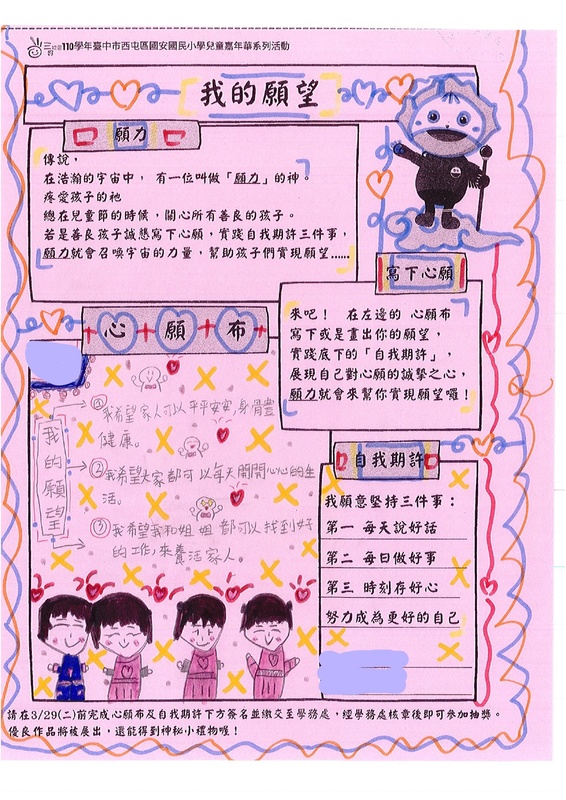 三好兒童110學年臺中市西屯區國安國民小學兒童嘉年華系列活動
我的願望
願力
傳說，
在浩瀚的宇宙中， 有一位叫做「願力」的神。
疼愛孩子的祂
總在兒童節的時候，關心所有善良的孩子。
若是善良孩子誠懇寫下心願，實踐自我期許三件事，
願力就會召喚宇宙的力量，幫助孩子們實現願望......
寫下心願
來吧！ 在左邊的 心願布
寫下或是畫出你的願望，
實踐底下的「自我期許」，
展現自己對心願的誠摯之心，
願力就會來幫你實現願望囉！
心願布
我的願望
①我希望家人可以平平安安,身體
健康。
②我希望大家都可以每天開開心心的生
活。
③我希望我和姐姐都可以找到好
的工作,來養活家人。
自我期許
我願意堅持三件事：
第一 每天說好話
第二 每日做好事
第三 時刻存好心
努力成為更好的自己
請在3/29(二)前完成心願布及自我期許下方簽名並繳交至學務處，經學務處核章後即可參加抽獎。
優良作品將被展出，還能得到神秘小禮物喔！